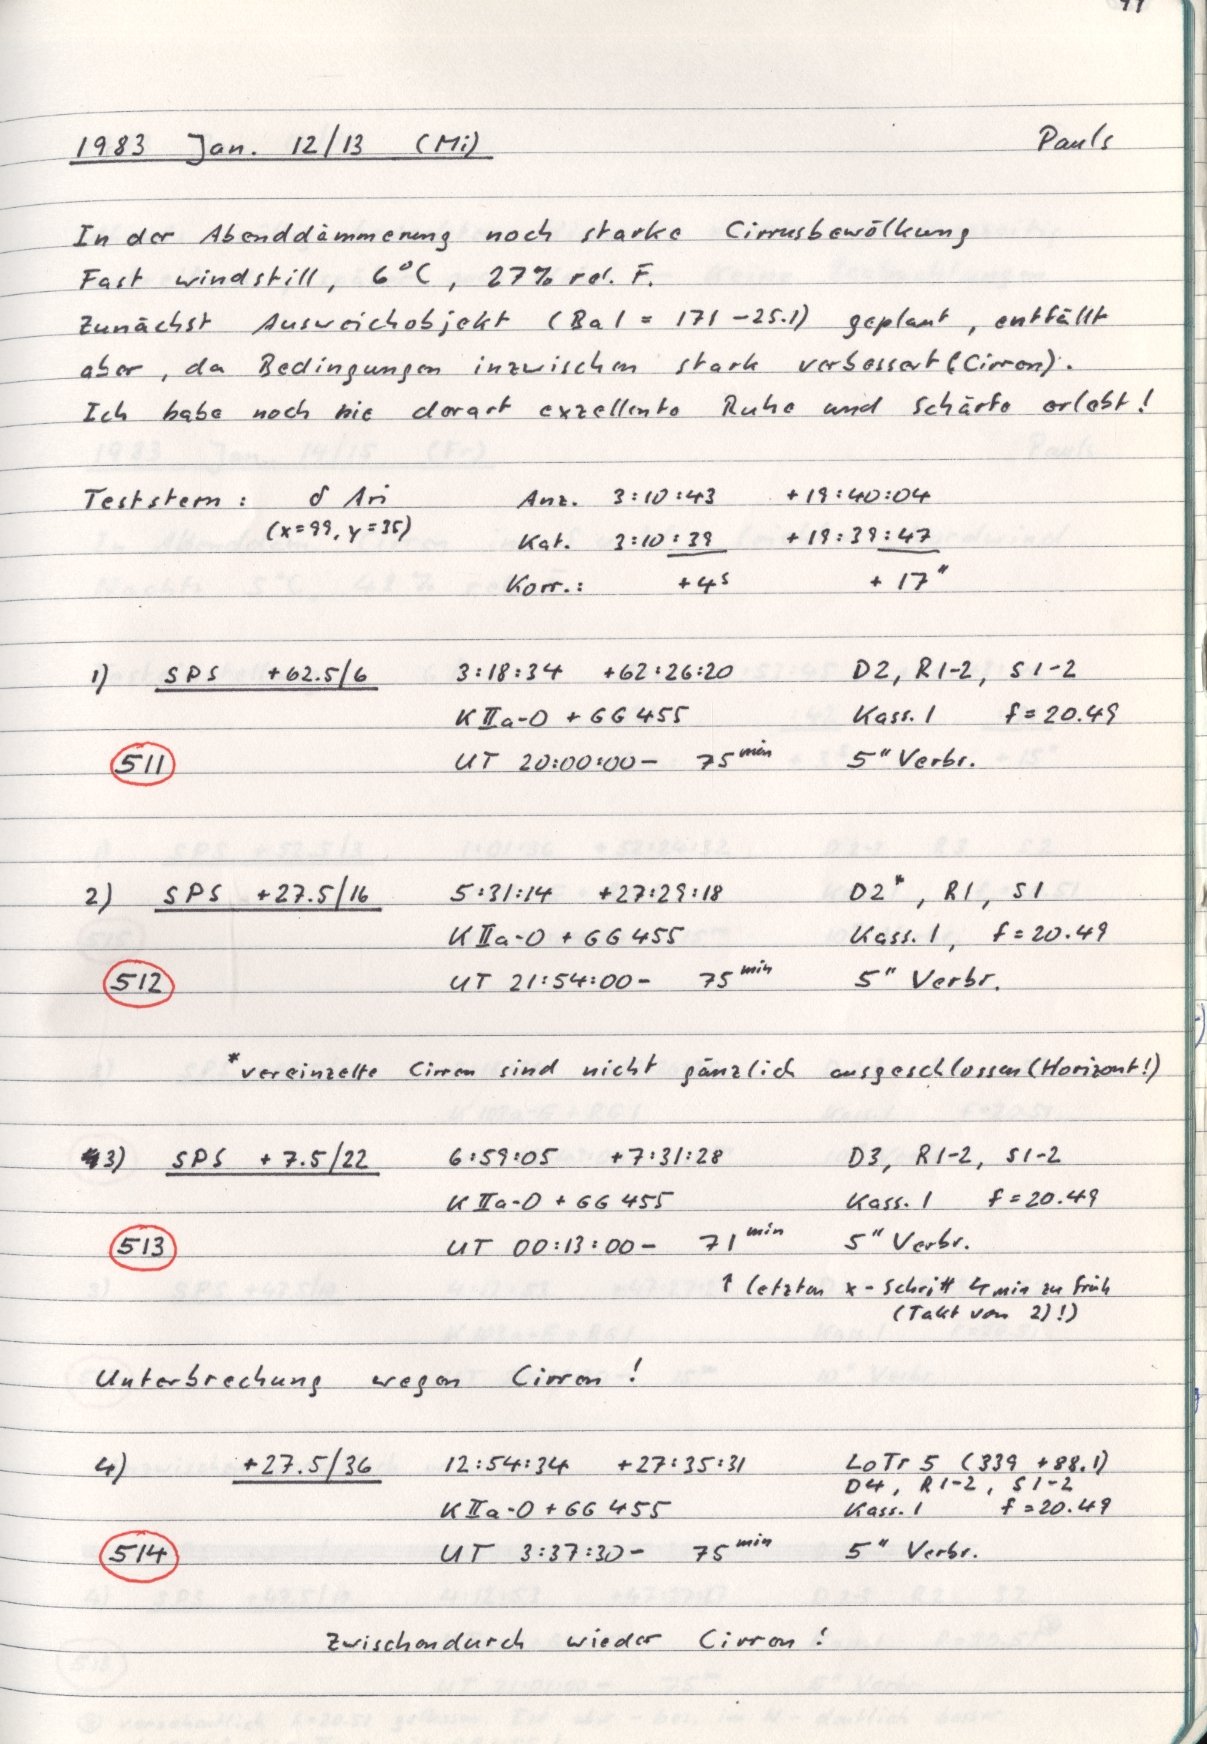 1983 Jan. 12/13 (Mi) Pauls
In der Abenddämmerung noch starke Cirrusbewölkung
Fast windstill, 6°C, 27% rel. F.
Zunächst Ausweichobjekt (Ba1 = 171 -25.1) geplant, entfällt
aber, da Bedingungen inzwischen stark verbessert (Cirren).
Ich habe noch nie derart exzellente Ruhe und Schärfe erlebt!
Teststern: δ Ari Anz. 3:10:43 +19:40:04
(x=99, y=35) Kat. 3:10:39 +19:39:47
Korr.: +4s +17"
1) SPS +62.5/6 3:18:34 +62:26:20 D2, R1-2, S1-2
K IIa-O + GG 455 Kass. 1 f=20.49
511 UT 20:00:00- 75min 5" Verbr.
2) SPS +27.5/16 5:31:14 +27:29:18 D2*, R1, S1
K IIa-O + GG 455 Kass. 1, f=20.49
512 UT 21:54:00- 75min 5" Verbr.
*vereinzelte Cirren sind nicht gänzlich ausgeschlossen (Horizont!)
3) SPS +7.5/22 6:59:05 +7:31:28 D3, R1-2, S1-2
K IIa-O + GG 455 Kass. 1 f=20.49
513 UT 00:13:00- 71min 5" Verbr.
↑ letzten x-Schritt 4min zu früh
(Takt von 2)!)
Unterbrechung wegen Cirren!
4) +27.5/36 12:54:34 +27:35:31 LoTr 5 (339 +88.1)
D4, R1-2, S1-2
K IIa-O + GG 455 Kass. 1 f=20.49
514 UT 3:37:30- 75min 5" Verbr.
Zwischendurch wieder Cirren!